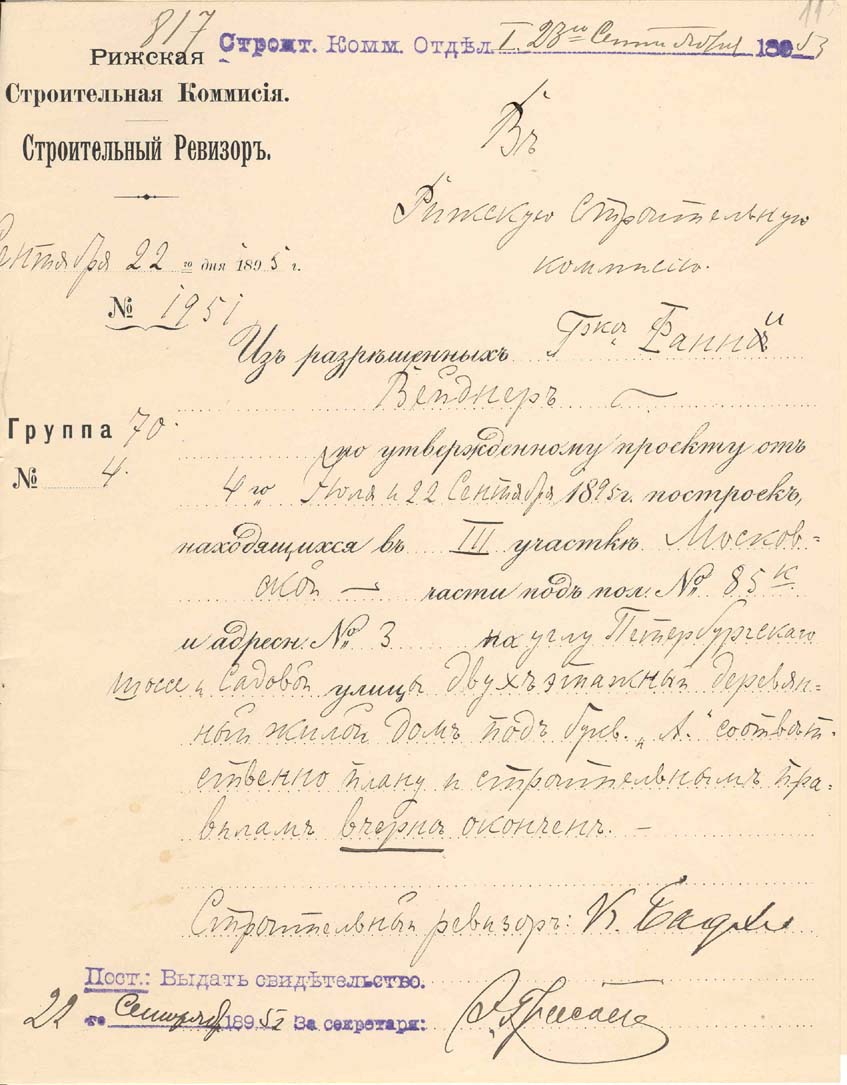 817
11
Строит. Комм. Отдѣл. I. 23го Сентября 1895
Рижская
Строительная Коммисія.
Строительный Ревизоръ.
Въ
Рижскую строительную
коммисію.
Сентября 22 го дня 1895 г.
№ 1951
Изъ разрѣшенныхъ Грке Фанни
Вейднеръ
Группа 70.
по утвержденному проекту отъ
№ 4.
4го Іюля и 22 Сентября 1895 г. построекъ,
находящихся въ III участкѣ Москов-
ской части подъ пол. № 85 к.
и адресн. № 3 на углу Петербургскаго
шоссе и Садовой улицы двухъэтажный деревян-
ный жилой домъ подъ букв. „А.“ соотвѣт-
ственно плану и строительнымъ пра-
виламъ вчернѣ оконченъ. —
Строительный ревизоръ: К.
Пост.: Выдать свидѣтельство.
22 го Сентября 1895 За секретаря: